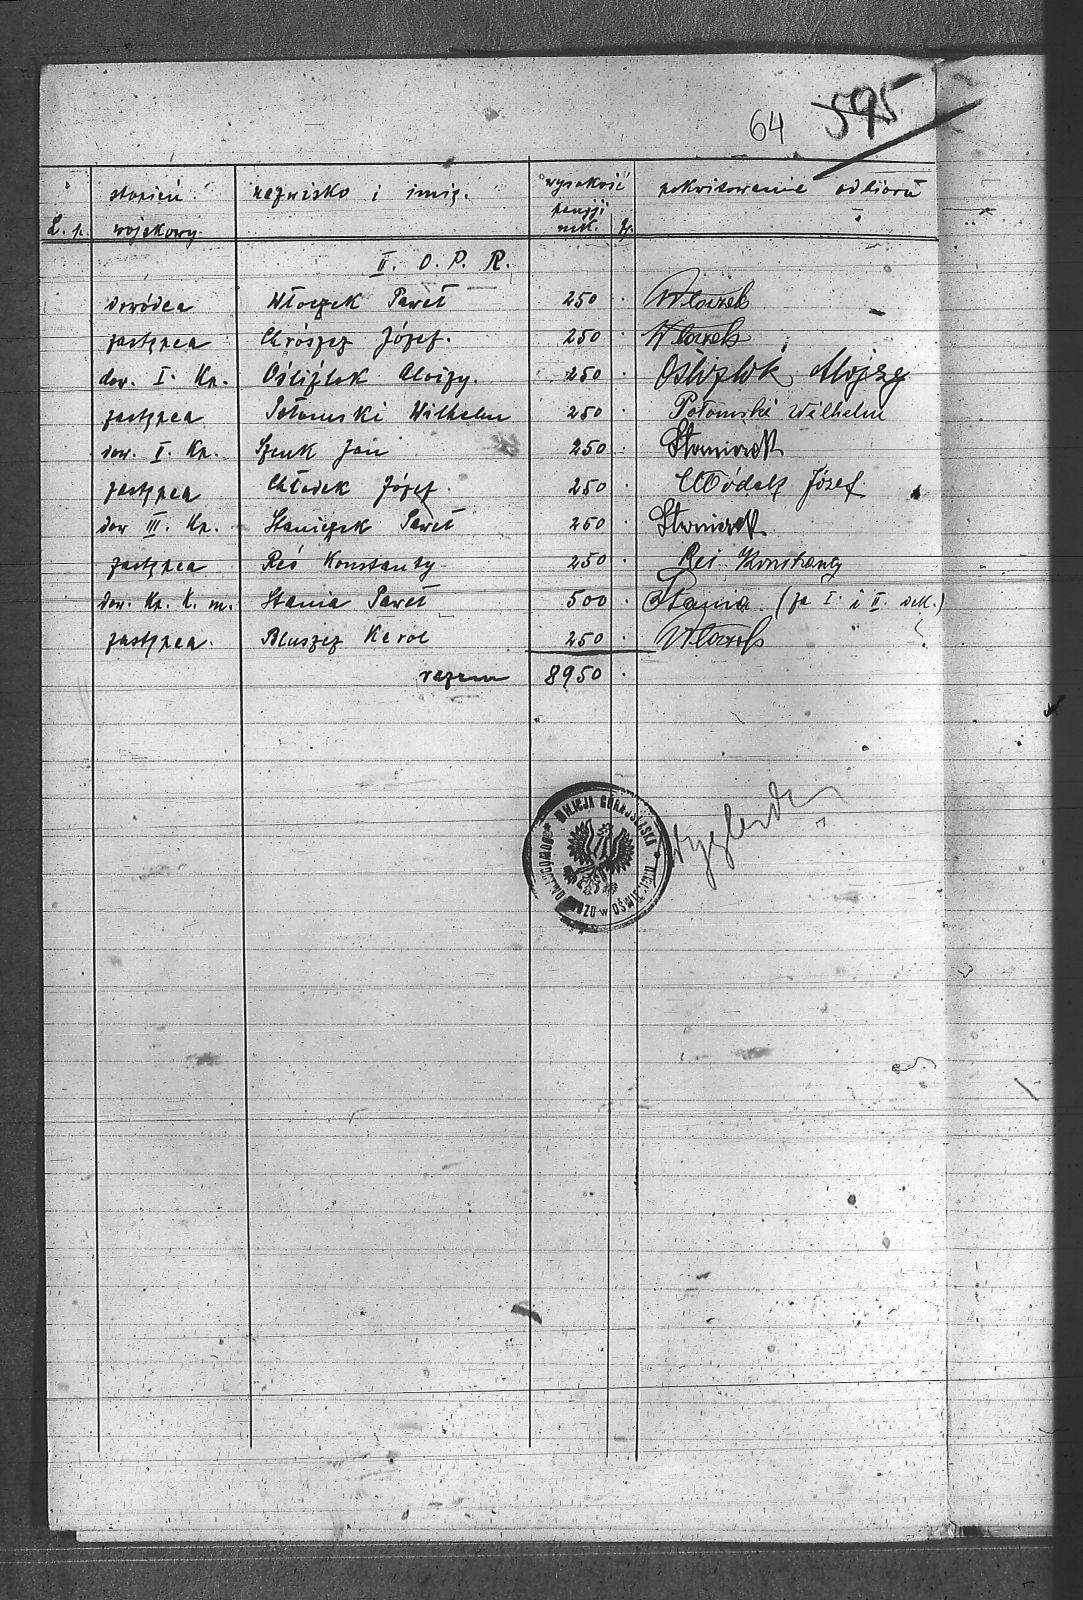 64 595
L. p. stopień wojskowy nazwisko i imię. wysokość pensji mk. f. pokwitowanie odbioru
II. O. P. R.
dowódca Włoczek Paweł 250 . Włoczek
zastępca Chrószcz Józef. 250 . Włoczek
dow. I. Kp. Oślizlok Aloizy. 250 . Oślizlok Alojzy
zastępca Połomski Wilhelm 250 . Połomski Wilhelm
dow. I. Kp. Szenk Jan 250 . Staniczek
zastępca Chłodek Józef. 250 . Józef
dow III. Kp. Staniczek Paweł 250 . Staniczek
zastępca Reś Konstanty 250 . Rei Konstanty
dow. Kp. K. m. Stania Paweł 500 . Stania. (za I. i II. dek.)
zastępca. Bluszcz Karol 250 . Włoczek
razem 8950 .
MILICJA GÓRNOŚLĄSKA
DOWÓDZTWO OBOZU w OŚWIĘCIMIU
Wyglenda